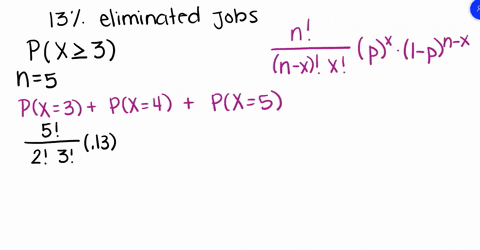 13% eliminated jobs
P(X≥3)
n=5
n!/((n-x)! x!) (p)^x · (1-p)^(n-x)
P(X=3) + P(X=4) + P(X=5)
5!/(2! 3!) (.13)